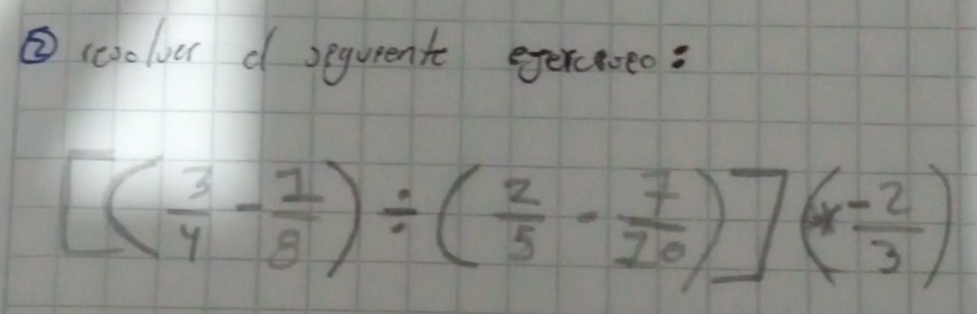 ② resolver el siguiente ejercicio:
[(3/4 - 1/8) ÷ (2/5 - 7/20)] (-2/3)